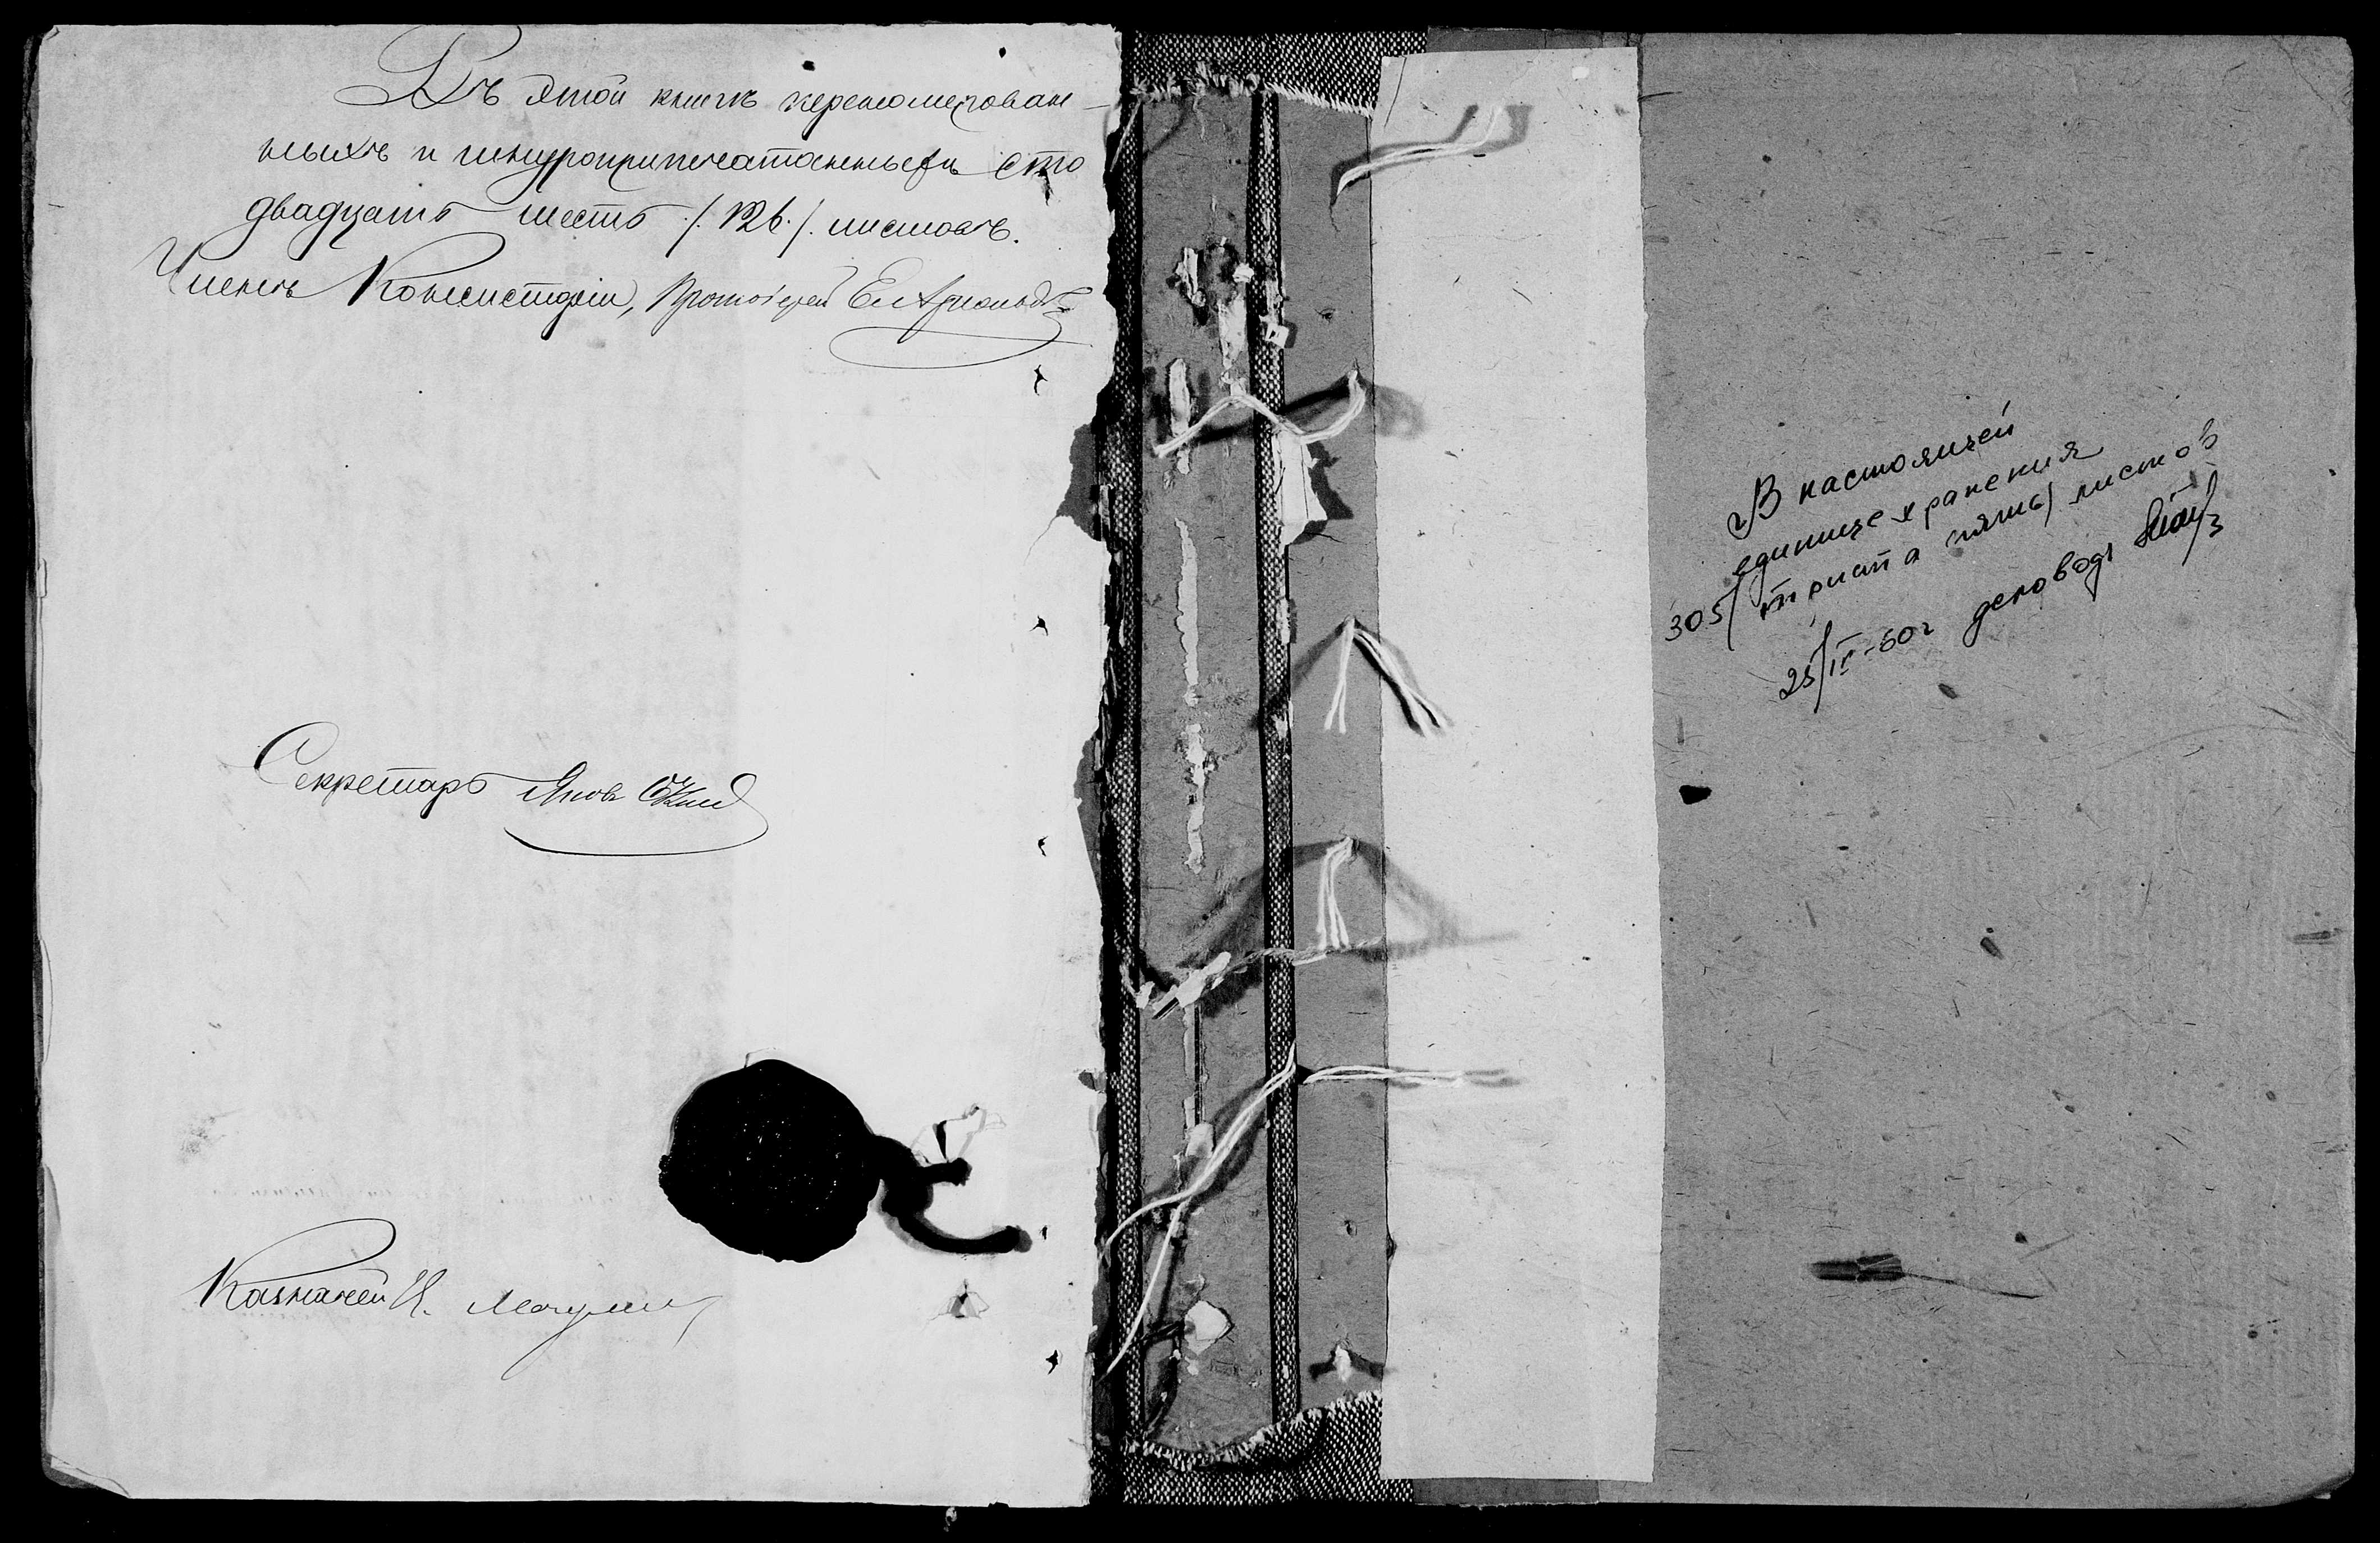 Въ этой книгѣ перенумерован-
ныхъ и шнуроприпечатанныхъ сто
двадцать шесть /.126./. листовъ.
Членъ Консисторіи, Протоіерей
Секретарь Яковъ
Казначей И.
В настоящей
единице хранения
305/ триста пять/ листов
25/IV-60г деловод